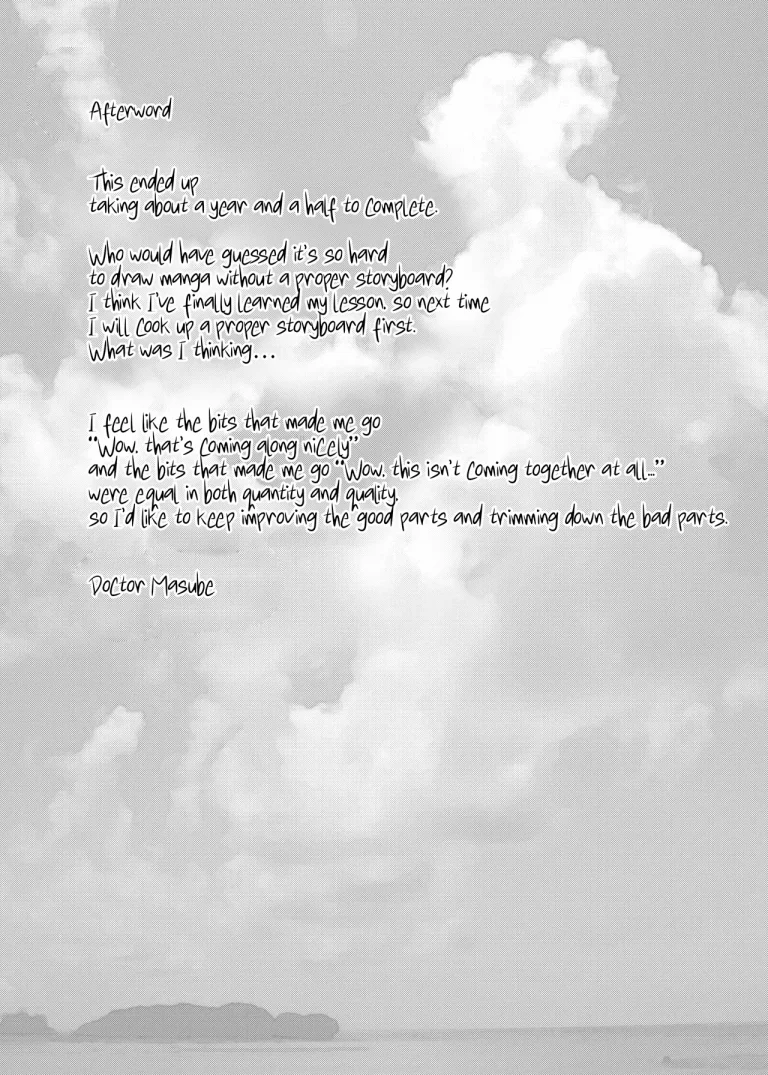 Afterword
This ended up
taking about a year and a half to complete.
Who would have guessed it's so hard
to draw manga without a proper storyboard?
I think I've finally learned my lesson, so next time
I will cook up a proper storyboard first.
What was I thinking...
I feel like the bits that made me go
"Wow, that's coming along nicely"
and the bits that made me go "Wow, this isn't coming together at all..."
were equal in both quantity and quality,
so I'd like to keep improving the good parts and trimming down the bad parts.
Doctor Masube